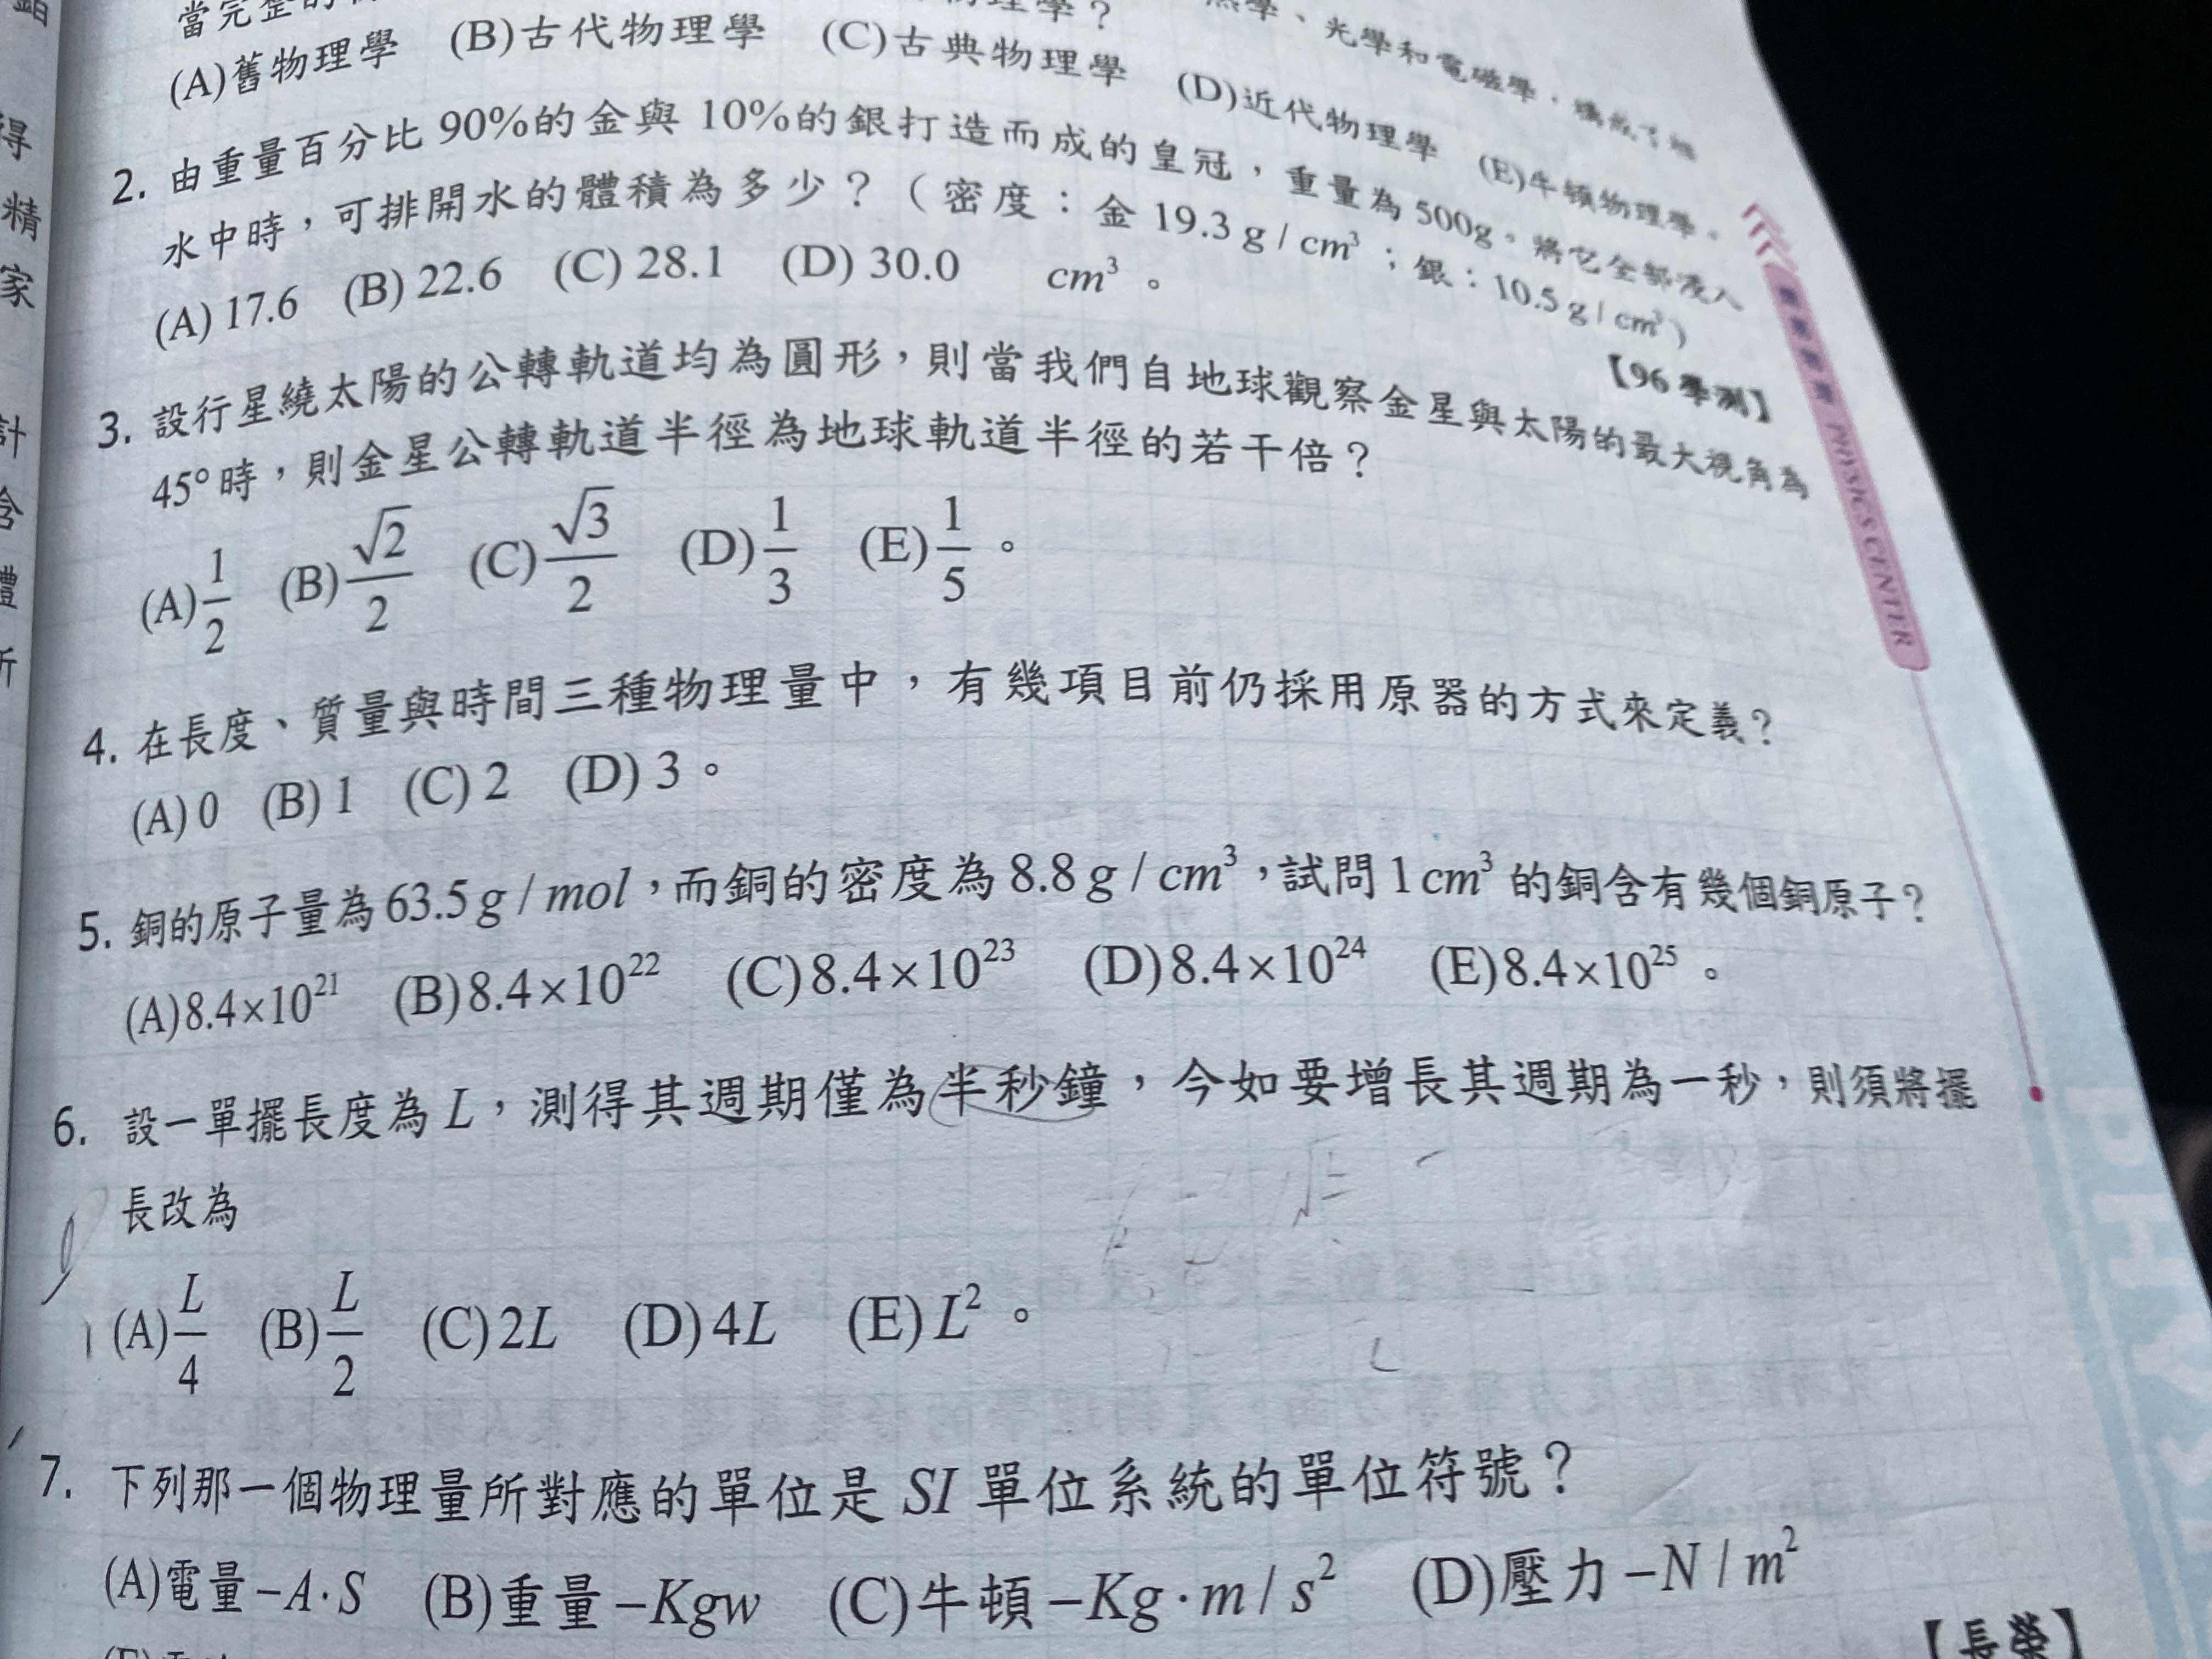 當完整的
理學？
熱學、光學和電磁學，構成了相
(A)舊物理學 (B)古代物理學 (C)古典物理學 (D)近代物理學 (E)牛頓物理學。
2. 由重量百分比 90%的金與 10%的銀打造而成的皇冠，重量為 500g。將它全部浸入
水中時，可排開水的體積為多少？（密度：金 19.3 g / cm³；銀：10.5 g / cm³）
(A) 17.6 (B) 22.6 (C) 28.1 (D) 30.0 cm³。
【96 學測】
3. 設行星繞太陽的公轉軌道均為圓形，則當我們自地球觀察金星與太陽的最大視角為
45°時，則金星公轉軌道半徑為地球軌道半徑的若干倍？
(A) 1/2 (B) √2/2 (C) √3/2 (D) 1/3 (E) 1/5 。
4. 在長度、質量與時間三種物理量中，有幾項目前仍採用原器的方式來定義？
(A) 0 (B) 1 (C) 2 (D) 3。
5. 銅的原子量為 63.5 g / mol，而銅的密度為 8.8 g / cm³，試問 1 cm³ 的銅含有幾個銅原子？
(A) 8.4×10²¹ (B) 8.4×10²² (C) 8.4×10²³ (D) 8.4×10²⁴ (E) 8.4×10²⁵。
6. 設一單擺長度為 L，測得其週期僅為半秒鐘，今如要增長其週期為一秒，則須將擺
長改為
(A) L/4 (B) L/2 (C) 2L (D) 4L (E) L²。
7. 下列那一個物理量所對應的單位是 SI 單位系統的單位符號？
(A)電量 –A·S (B)重量 –Kgw (C)牛頓 –Kg·m / s² (D)壓力 –N / m²
【長榮】
得
精
家
計
含
體
PHYSICS CENTER